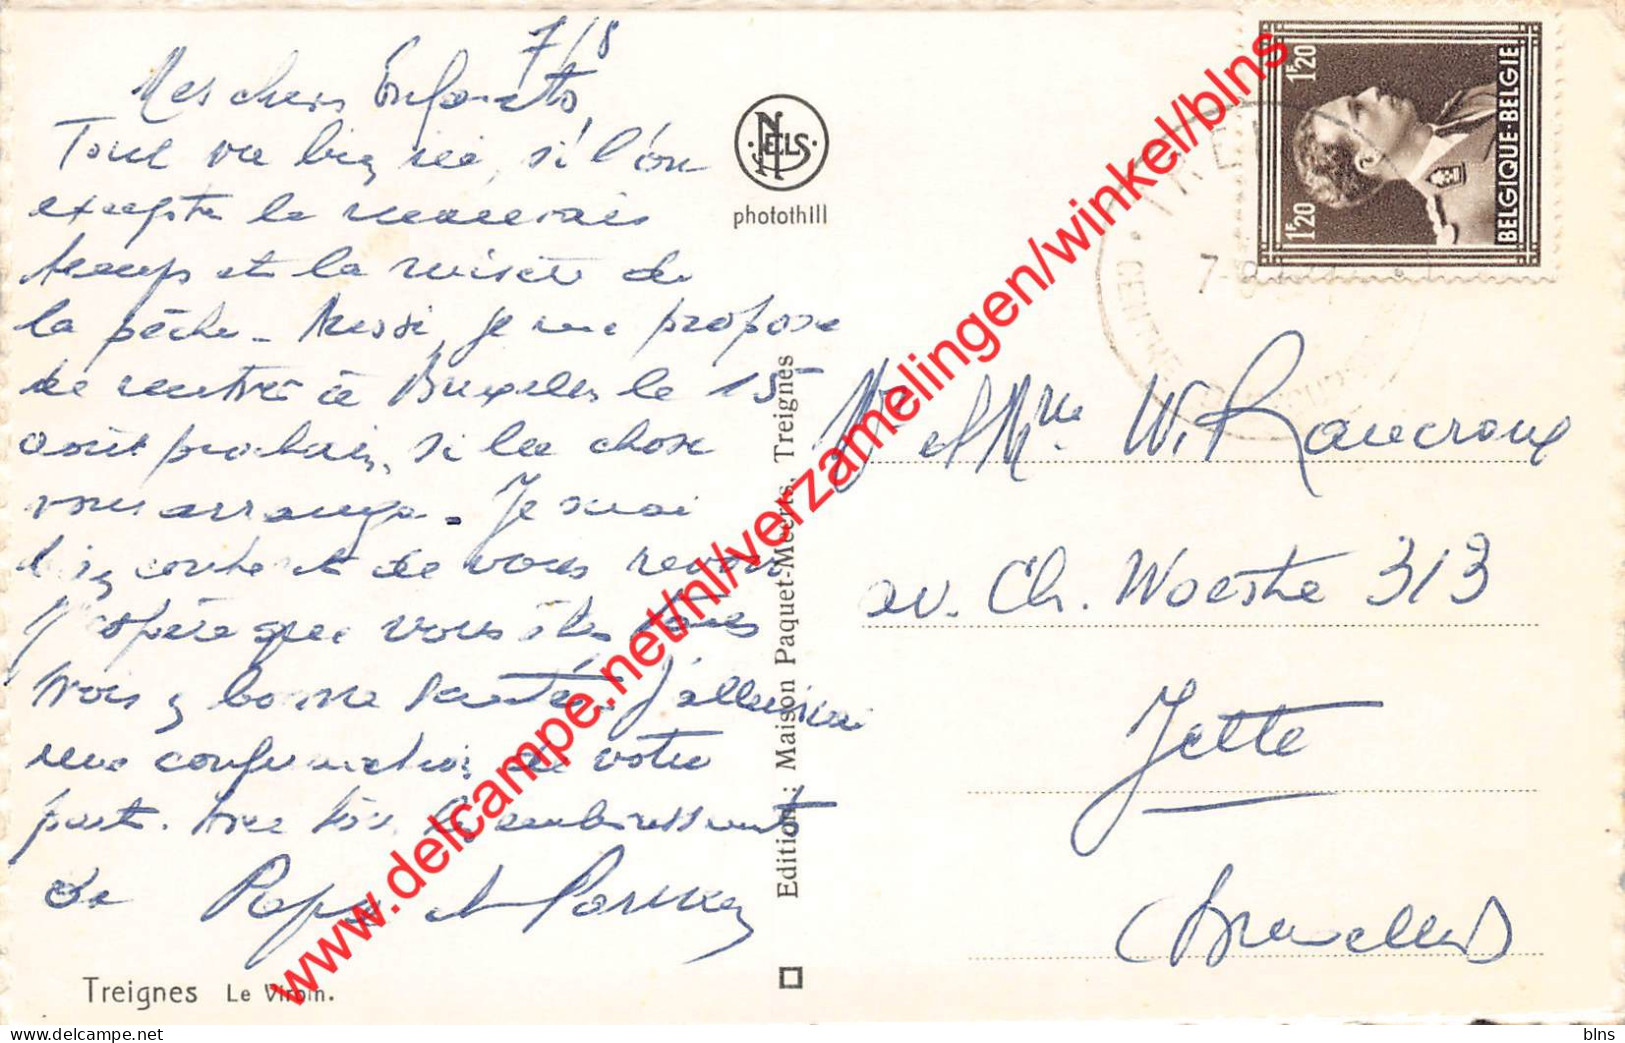 7/8
Mes chers Enfants,
Tout va bien ici, si l'on
excepte le mauvais
temps et la misère de
la pêche. Aussi, je me propose
de rentrer à Bruxelles le 15
août prochain, si la chose
vous arrange. Je serai
bien content de vous revoir
J'espère que vous êtes tous
trois en bonne santé. J'aimerai
une confirmation de votre
part. les embrassements
de Papa et
Treignes Le Viroin.
NELS
photothill
Edition : Maison Paquet-Meerts, Treignes
1F20
1F20
BELGIQUE-BELGIE
TREI
7-8
CENTRE
Mr et Mme W. Raucroux
av. Ch. Woeste 313
Jette
Bruxelles
www.delcampe.net/nl/verzamelingen/winkel/blns
blns